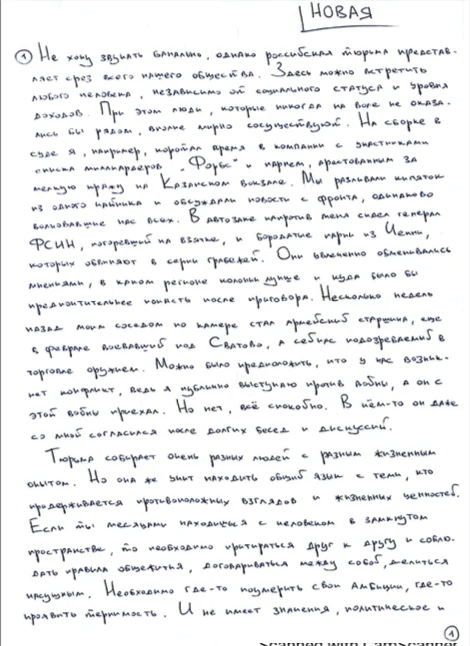 НОВАЯ
① Не хочу звучать банально, однако российская тюрьма представ-
ляет срез всего нашего общества. Здесь можно встретить
любого человека, независимо от социального статуса и уровня
доходов. При этом люди, которые никогда на воле не оказа-
лись бы рядом, вполне мирно сосуществуют. На сборке в
суде я, например, коротал время в компании с участниками
списка миллиардеров „Форбс" и парнем, арестованным за
мелкую кражу на Казанском вокзале. Мы разливали кипяток
из одного чайника и обсуждали новости с фронта, одинаково
волновавшие нас всех. В автозаке напротив меня сидел генерал
ФСИН, погоревший на взятке, и бородатые парни из Чечни,
которых обвиняют в серии грабежей. Они увлеченно обменивались
мнениями, в каком регионе колонии лучше и куда было бы
предпочтительнее попасть после приговора. Несколько недель
назад моим соседом по камере стал армейский старшина, еще
в феврале воевавший под Сватово, а сейчас подозреваемый в
торговле оружием. Можно было предположить, что у нас возник-
нет конфликт, ведь я публично выступаю против войны, а он с
этой войны приехал. Но нет, всё спокойно. В чём-то он даже
со мной согласился после долгих бесед и дискуссий.
Тюрьма собирает очень разных людей с разным жизненным
опытом. Но она же учит находить общий язык с теми, кто
придерживается противоположных взглядов и жизненных ценностей.
Если ты месяцами находишься с человеком в замкнутом
пространстве, то необходимо притираться друг к другу и соблю-
дать правила общежития, договариваться между собой, делиться
насущным. Необходимо где-то поумерить свои амбиции, где-то
проявить терпимость. И не имеет значения, политическое и
①
Scanned with CamScanner